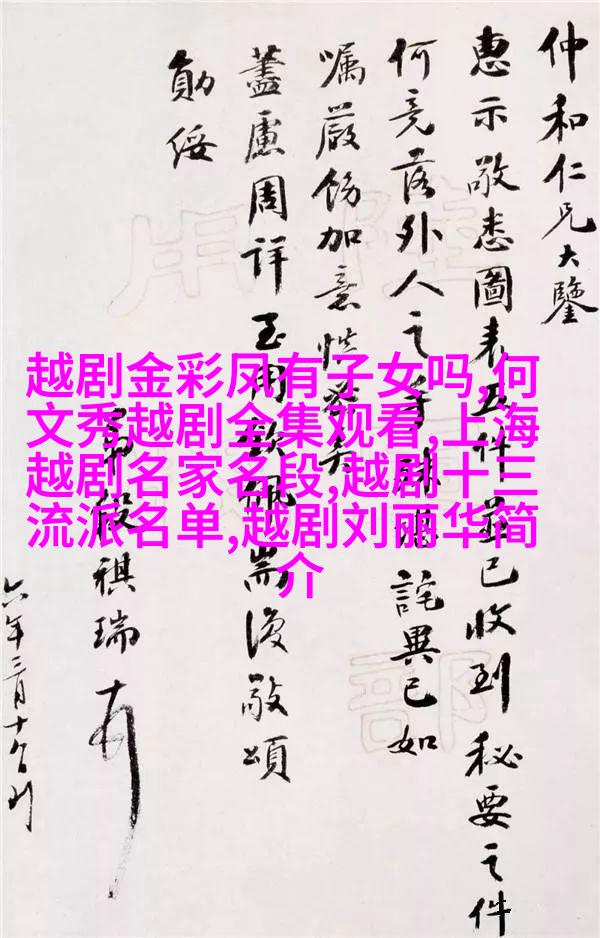 越剧金彩凤有子女吗,何
文秀越剧全集观看,上海
越剧名家名段,越剧十三
流派名单,越剧刘丽华简
介
仲和仁兄大鑒
惠示敬悉圖表五件並已收到秘要之件
何竟落外人之手詫異已如
囑嚴飭加意慎
藎慮周詳至用欽佩耑復敬頌
勛綏
弟段祺瑞
六年三月十日